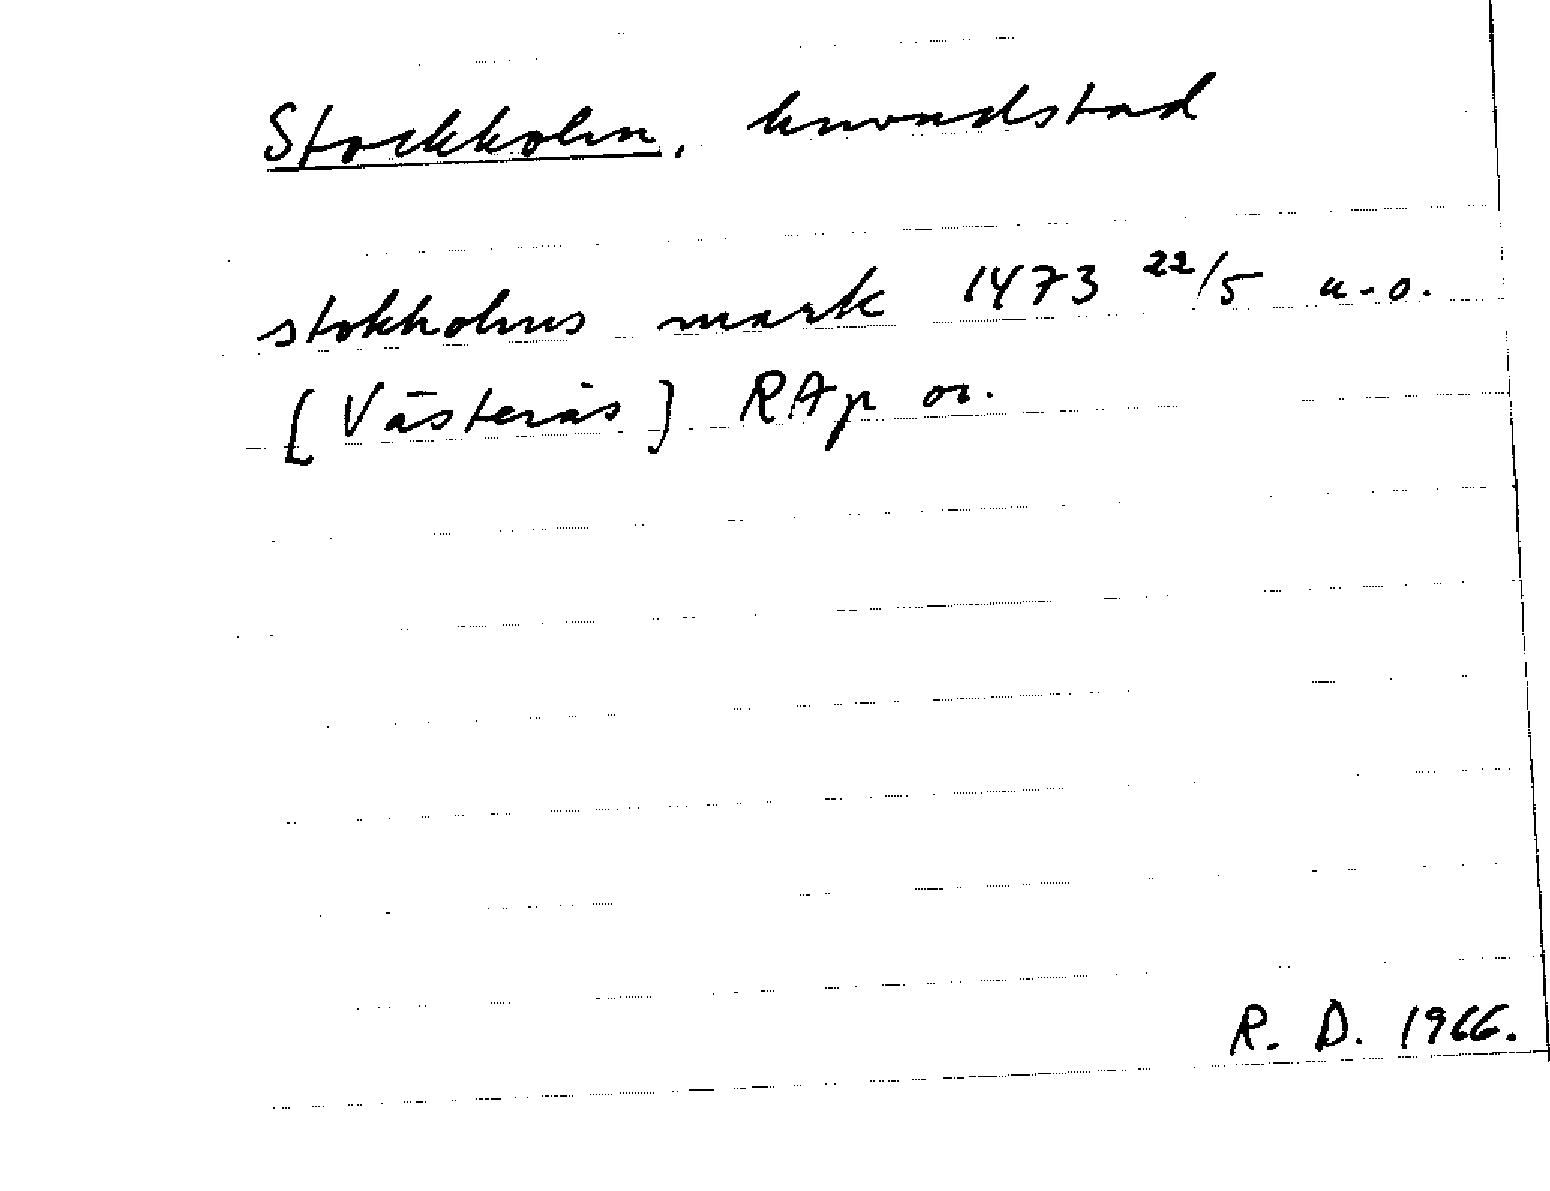 Stockholm, huvudstad
stokholms mark 1473 22/5 u.o.
[Västerås] RAp or.
R. D. 1966.